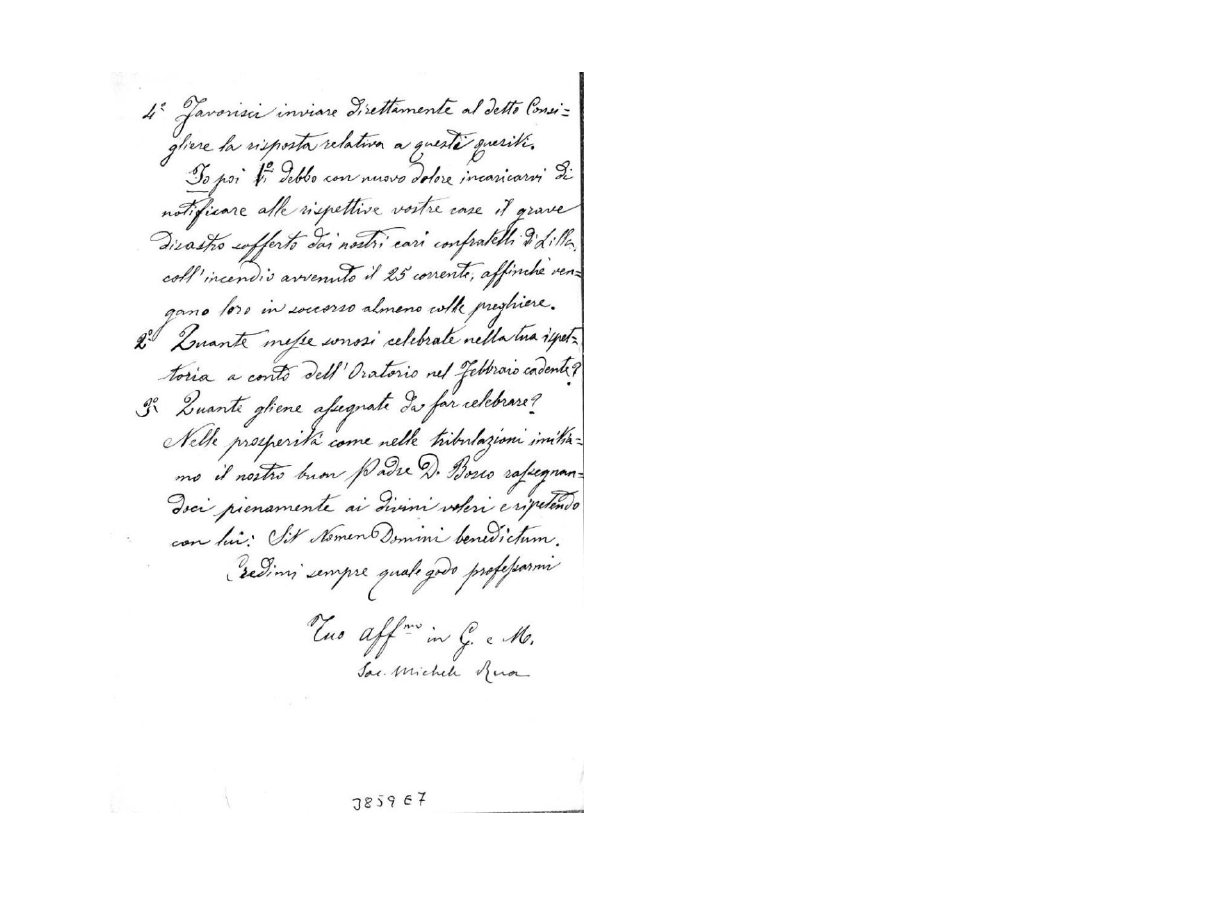 4° Favorisci inviare direttamente al detto Consi=
gliere la risposta relativa a questi quesiti.
Io poi 1° Vi debbo con nuovo dolore incaricarvi di
notificare alle rispettive vostre case il grave
disastro sofferto dai nostri cari confratelli di Lilla,
coll'incendio avvenuto il 25 corrente, affinchè ven=
gano loro in soccorso almeno colle preghiere.
2° Quante messe sonosi celebrate nella tua ispet=
toria a conto dell'Oratorio nel Febbraio cadente?
3° Quante gliene assegnate da far celebrare?
Nelle prosperità come nelle tribulazioni imitia=
mo il nostro buon Padre D. Bosco rassegnan=
doci pienamente ai divini voleri e ripetendo
con lui: Sit Nomen Domini benedictum.
Credimi sempre quale godo professarmi
Tuo Aff.mo in G. e M.
Sac. Michele Rua
3859 E7